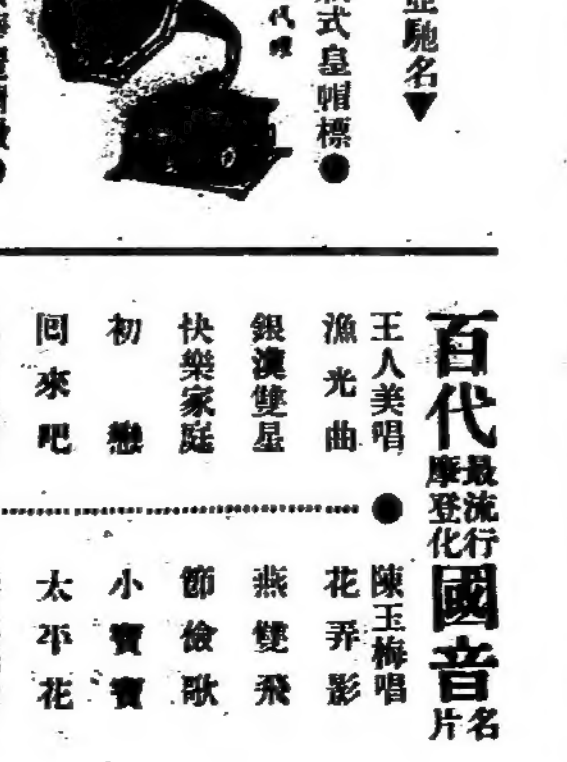 馳名▼
式皇帽標●
代理
百代最流行摩登化國音名片
王人美唱
漁光曲
銀漢雙星
快樂家庭
初戀
回來吧
●
陳玉梅唱
花弄影
燕雙飛
節儉歌
小寶寶
太平花